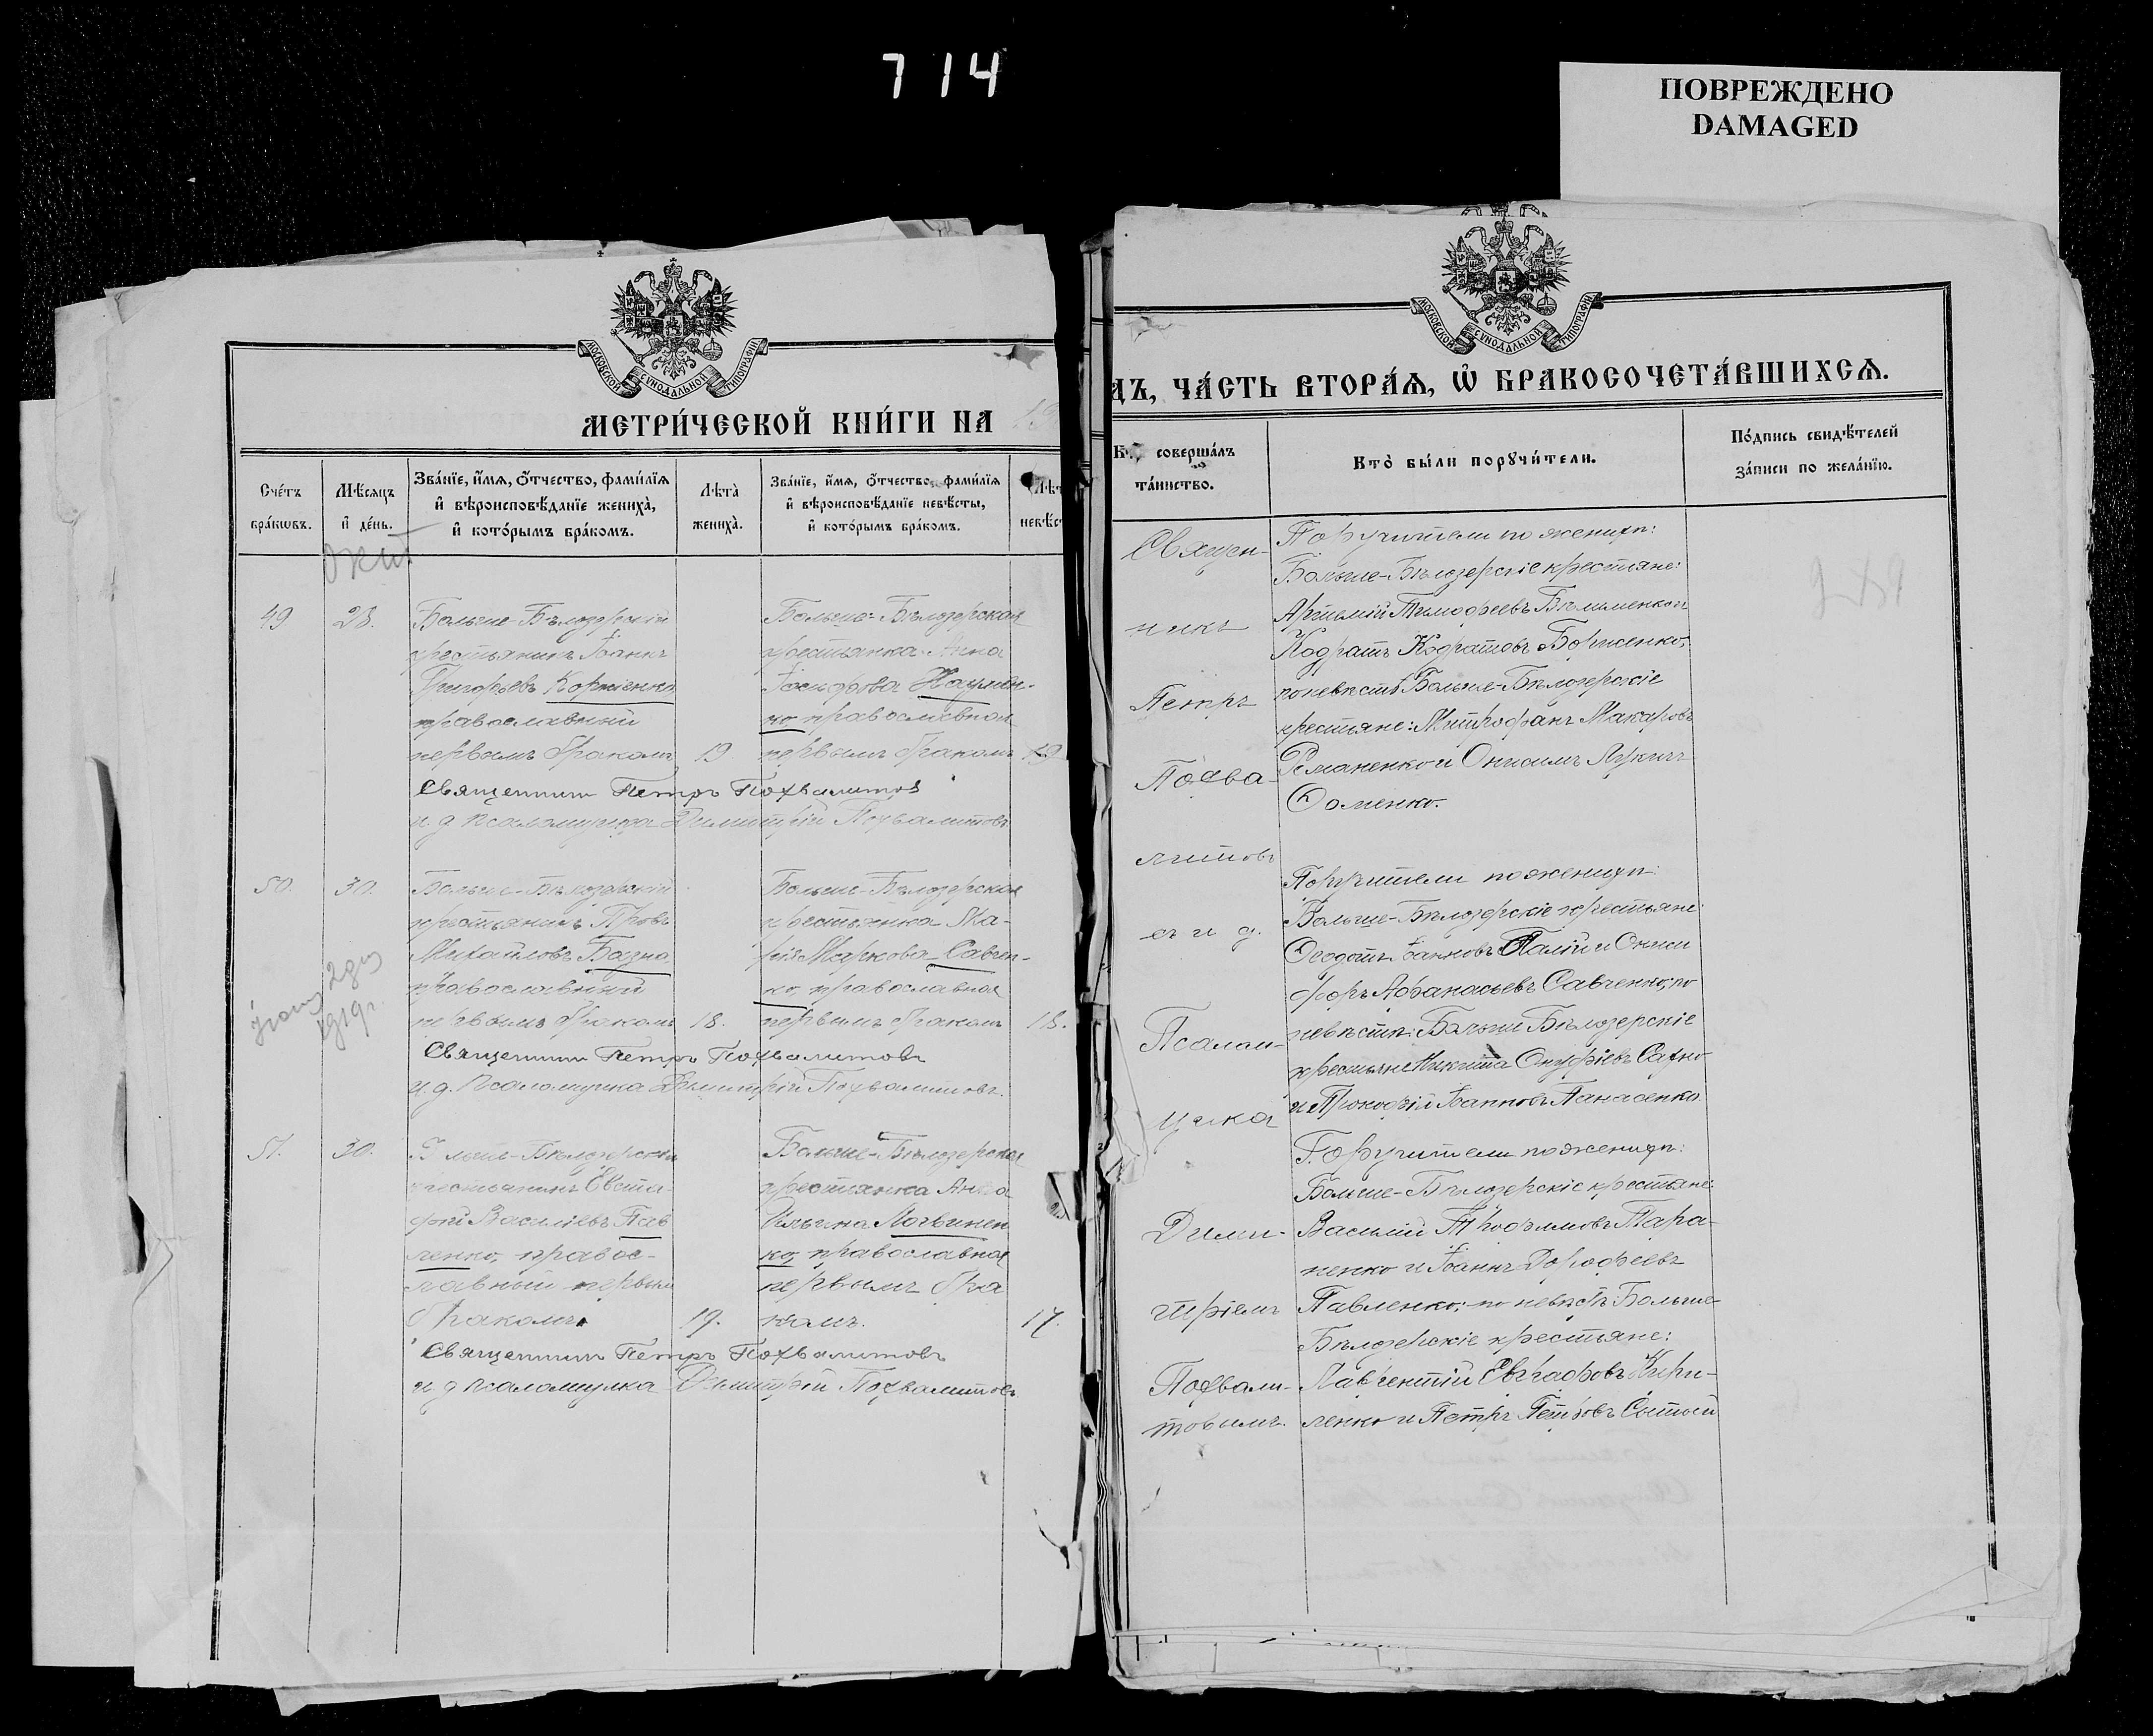 714
ПОВРЕЖДЕНО
DAMAGED
МОСКОВСКОЙ СѴНОДАЛЬНОЙ ТИПОГРАФІИ
МЕТРИ́ЧЕСКОЙ КНИ́ГИ НА
Сче́тъ бра́кѡвъ.
Мѣ́сяцъ и҆ де́нь.
Зва́нїе, и҆́мѧ, ѻ҆́тчество, фами́лїѧ и҆ вѣроисповѣ́данїе женихà, и҆ кото́рымъ бра́комъ.
Лѣта̀ женихà.
Зва́нїе, и҆́мѧ, ѻ҆́тчество, фами́лїѧ и҆ вѣроисповѣ́данїе невѣ́сты, и҆ кото́рымъ бра́комъ.
Окт
49
28.
Больше-Бѣлозерскій
крестьянинъ Іоаннъ
Григорьевъ Корніенко
православный
первымъ бракомъ
19
Больше-Бѣлозерская
крестьянка Анна
Іосифова Наумен-
ко, православная
первымъ бракомъ
Священникъ Петръ Похвалитовъ
и. д. псаломщика Димитрій Похвалитовъ
50.
30.
Больше-Бѣлозерскій
крестьянинъ
Михайловъ Базна
православный
первымъ бракомъ
18.
Больше-Бѣлозерская
крестьянка Ма-
рія Маркова Савчен-
ко, православная
первымъ бракомъ
18.
1919г.
Священникъ Петръ Похвалитовъ
и. д. псаломщика Димитрій Похвалитовъ.
51.
30.
Больше-Бѣлозерскій
крестьянинъ Евста-
фій Василіевъ Пав
ленко, правос-
лавный первымъ
бракомъ
19.
Больше-Бѣлозерская
крестьянка Анна
Ильина Логвинен
ко, православная
первымъ бра
комъ.
17.
Священникъ Петръ Похвалитовъ
и. д. псаломщика Димитрій Похвалитовъ
МОСКОВСКОЙ СѴНОДАЛЬНОЙ ТИПОГРАФІИ
ДЪ, ЧА́СТЬ ВТОРА́Ѧ, Ѡ҆ БРАКОСОЧЕТА́ВШИХСѦ.
совершáлъ та́инство.
Кто̀ бы́ли порꙋчи́тели.
По́дпись свидѣ́телей за́писи по жела́нїю.
Священ-
никъ
Петръ
Похва-
литовъ
съ и. д.
Псалом-
щика
Дими-
тріемъ
Похвали-
товымъ.
Поручители по женихѣ:
Больше-Бѣлозерскіе крестьяне:
Артемій Тимофеевъ и
Кодратъ Кодратовъ Борисенко;
по невѣстѣ Больше-Бѣлозерскіе
крестьяне: Митрофанъ Макаровъ
Романенко и Онисимъ Лукичъ
Фоменко.
Поручители по женихѣ:
Больше-Бѣлозерскіе крестьяне:
Ѳеодотъ Іоанновъ Палій и Они
форъ Афанасьевъ Савченко; по
невѣстѣ: Больше Бѣлозерскіе
крестьяне Никита Онуфріевъ Сахно
и Прокофій Іоанновъ Панасенко
Поручители по женихѣ:
Больше-Бѣлозерскіе крестьяне:
Василій Трофимовъ Пара-
ненко и Іоаннъ Дорофеевъ
Павленко; по невѣстѣ: Больше-
Бѣлозерскіе крестьяне:
Лаврентій Евграфовъ Кири-
ленко и Петръ Петровъ Сытый